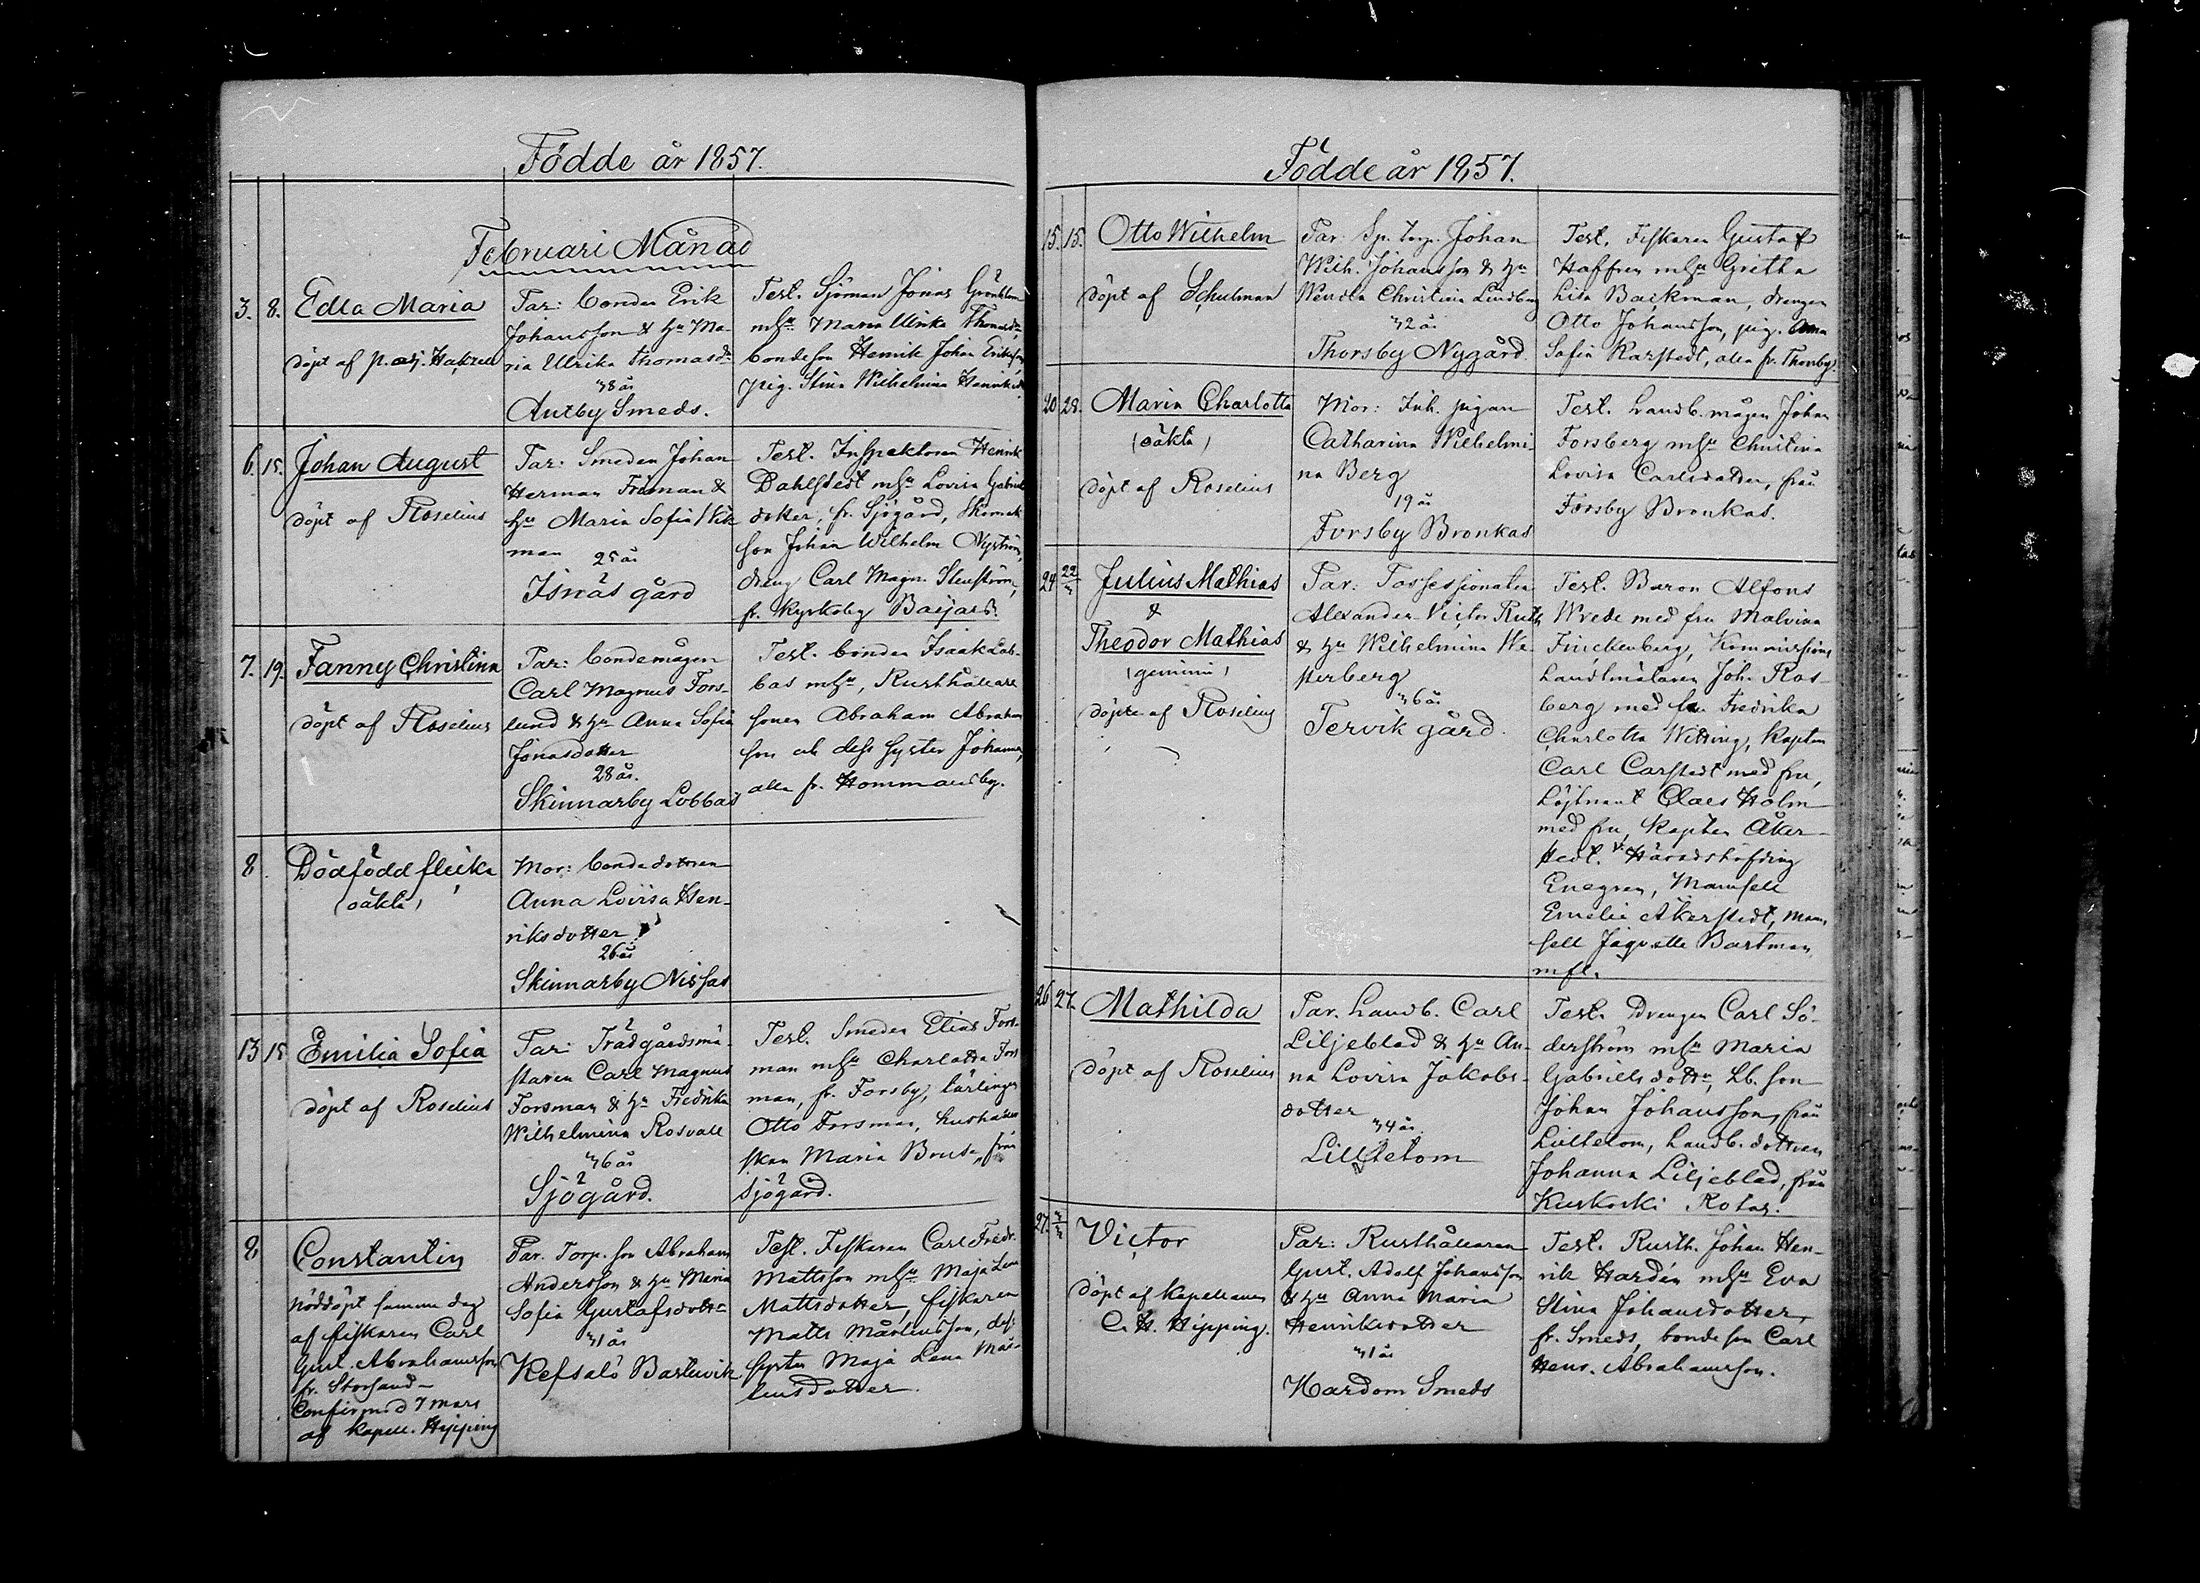 Födde år 1857.
Februari Månad
3. 8. Edla Maria
döpt af p. adj.
Par: bonden Erik
Johansson & hu Ma-
ria Ulrika Thomasdr
38 år
Antby Smeds.
Test. Sjöman Jonas Grönholm
mhu Maria Ulrika Thomasdr
bondeson Henrik Johan Eriksson,
pig. Stina Wilhelmina Henriksdr
6. 15. Johan August
döpt af Roselius
Par: Smeden Johan
Herman Friman &
hu Maria Sofia Wik
man
25 år
Isnäs gård
Test. Inspektoren Henrik
Dahlstedt mhu Lovisa Gabriels
dotter, fr. Sjögård,
son Johan Wilhelm Nyström,
dreng Carl Magn. Stenström,
fr. Kyrkoby Baijars.
7. 19. Fanny Christina
döpt af Roselius
Par: bondemågen
Carl Magnus Fors-
lund & hu Anna Sofia
Jonasdotter
28 år.
Skinnarby Lobbas
Test. bonden Isaak Lob-
bas mhu, Rusthållare
sonen Abraham Abraham
son och dess syster Johanna,
alla fr. Hommansby.
8. Dödfödd flicka
(oäkta)
Mor: bondedottren
Anna Lovisa Hen-
riksdotter
26 år
Skinnarby Nissas
13 15 Emilia Sofia
döpt af Roselius
Par: Trädgårdsmä-
staren Carl Magnus
Forsman & hu Fredrika
Wilhelmina Rosvall
36 år
Sjögård.
Test. Smeden Elias Fors-
man mhu Charlotta Fors
man, fr. Forsby, lärlingen
Otto Forsman, hushåller
skan Maria från
Sjögård.
8 Constantin
Nöddöpt samma dag
af fiskaren Carl
Gust. Abrahamsson
fr. Storsand –
Confirmed 7 mars
af kapell. Hipping
Par. Torp. son Abraham
Andersson & hu Maria
Sofia Gustafsdottr
31 år
Kefsalö Bastuvik
Test. Fiskaren Carl Fredr.
Mattsson mhu Maja Lena
Mattsdotter, fiskaren
Matts Mårtensson, dess
syster Maja Lena Mår-
tensdotter.
Födde år 1857.
15. 15. Otto Wilhelm
döpt af Schulman
Par: Sp. torp. Johan
Wilh. Johansson & hu
Wendla Christina Lindberg
32 år
Thorsby Nygård.
Test. Fiskaren Gustaf
Haffren mhu Gretha
Lisa Backman, drengen
Otto Johansson, pig. Anna
Sofia Karstedt, alla fr. Thorsby
20 28. Maria Charlotta
(oäkta)
döpt af Roselius
Mor: Inh. pigan
Catharina Wilhelmi-
na Berg
19 år
Forsby Bronkas
Test. Landb. mågen Johan
Forsberg mhu Christina
Lovisa Carlsdotter, från
Forsby Bronkas.
24 22/3 Julius Mathias
&
Theodor Mathias
(gemini)
döpte af Roselius
Par: Possessionaten
Alexander Victor Ruth
& hu Wilhelmina We-
sterberg
36 år
Tervik gård.
Test. Baron Alfons
Wrede med fru Malvina
Finckenberg, Kommissions
Landtmätaren Joh. Ros-
berg med fru Fredrika
Charlotta Witting, Kapten
Carl Carstedt med fru,
Löjtnant Claes Holm
med fru, Kapten Åker-
stedt. V. Häradshöfding
Enegren, Mamsell
Emelie Åkerstedt, Mam
sell Jaquette Bartman
mfl.
26 27. Mathilda
döpt af Roselius
Par. Landb. Carl
Liljeblad & hu An-
na Lovisa Jakobs-
dotter
34 år
Lilltetom
Test. Drengen Carl Sö-
derström mhu Maria
Gabrielsdottr, Lb. son
Johan Johansson, från
Lilltetom, Landb. dottren
Johanna Liljeblad, från
Kuskoski Rotas.
27. 3/3 Victor
döpt af kapellanen
C. H. Hipping.
Par: Rusthållaren
Gust. Adolf Johansson
& hu Anna Maria
Henriksdotter
31 år
Hardom Smeds
Test. Rusth. Johan Hen-
rik Hardén mhu Eva
Stina Johansdotter,
fr. Smeds, bonde son Carl
Henr. Abrahamsson.